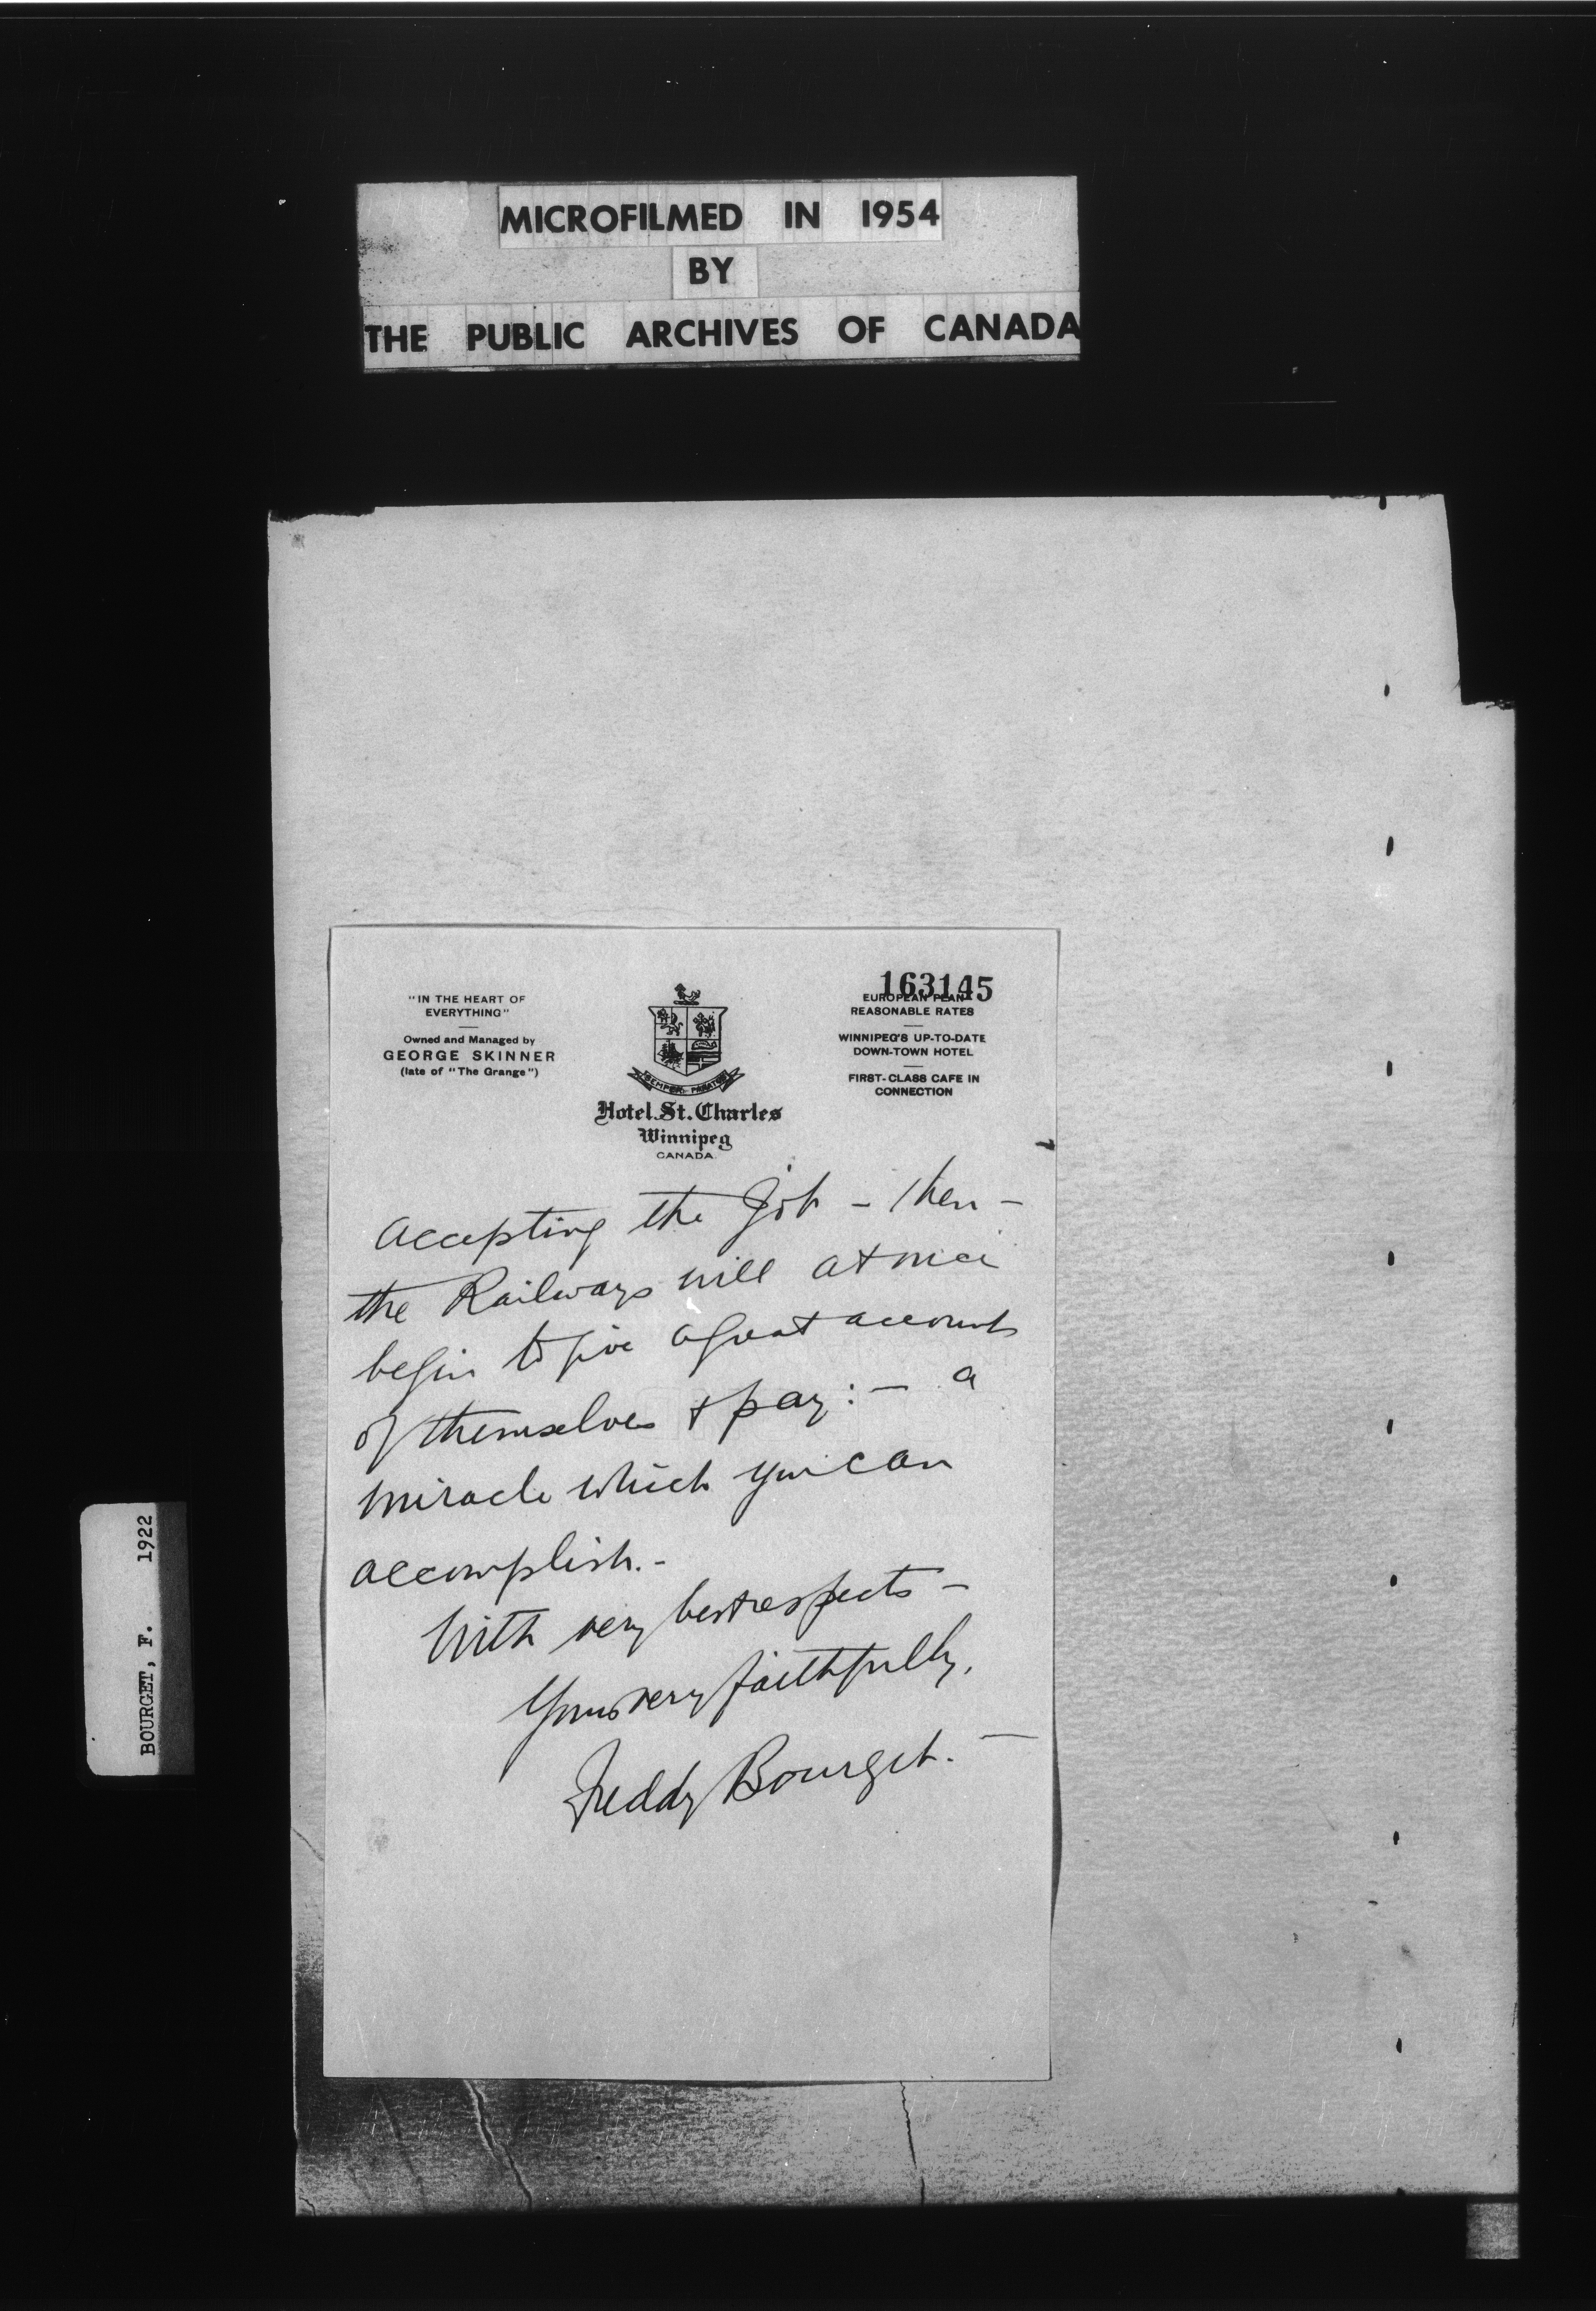 MICROFILMED IN 1954
BY
THE PUBLIC ARCHIVES OF CANADA
163145
"IN THE HEART OF
EVERYTHING"
Owned and Managed by
GEORGE SKINNER
(late of "The Grange")
SEMPER PARATUS
Hotel St. Charles
Winnipeg
CANADA
EUROPEAN PLAN
REASONABLE RATES
WINNIPEG'S UP-TO-DATE
DOWN-TOWN HOTEL
FIRST-CLASS CAFE IN
CONNECTION
accepting the Job - then -
the Railways will at once
begin to give a great account
of themselves & pay: - a
miracle which you can
accomplish. -
With very best respects -
Yours very faithfully,
Freddy Bourget. -
BOURGET, F. 1922